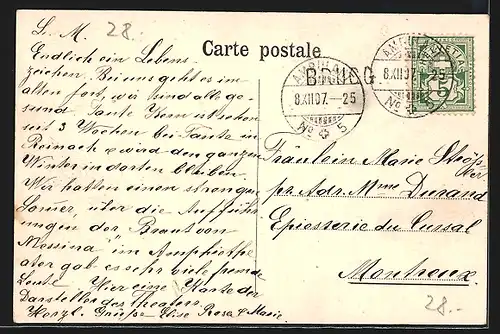 L. M. 28.
Carte postale.
Endlich ein Lebens-
zeichen. Bei uns geht es im
alten fort, wir sind alle ge-
sund. Tante
seit 3 Wochen bei Tante in
Reinach & wird den ganzen
Winter in dorten bleiben.
Wir hatten einen strengen
Somer, über die Aufführ-
ungen der Braut von
Messina im Amphithe-
ater gab es sehr viele fremde
Leute. Hier eine Karte der
Darsteller des Theaters.
Herzl. Grüsse Elise Rosa & Marie.
AMBULANT
8.XII.07.-25
No 5
BRUGG
AMBULANT
8.XII.07.-25
No 5
HELVETIA
5
Fräulein Marie
pr. Adr. Mme Durand
Epicerie du Cursal
Montreux.
28.-